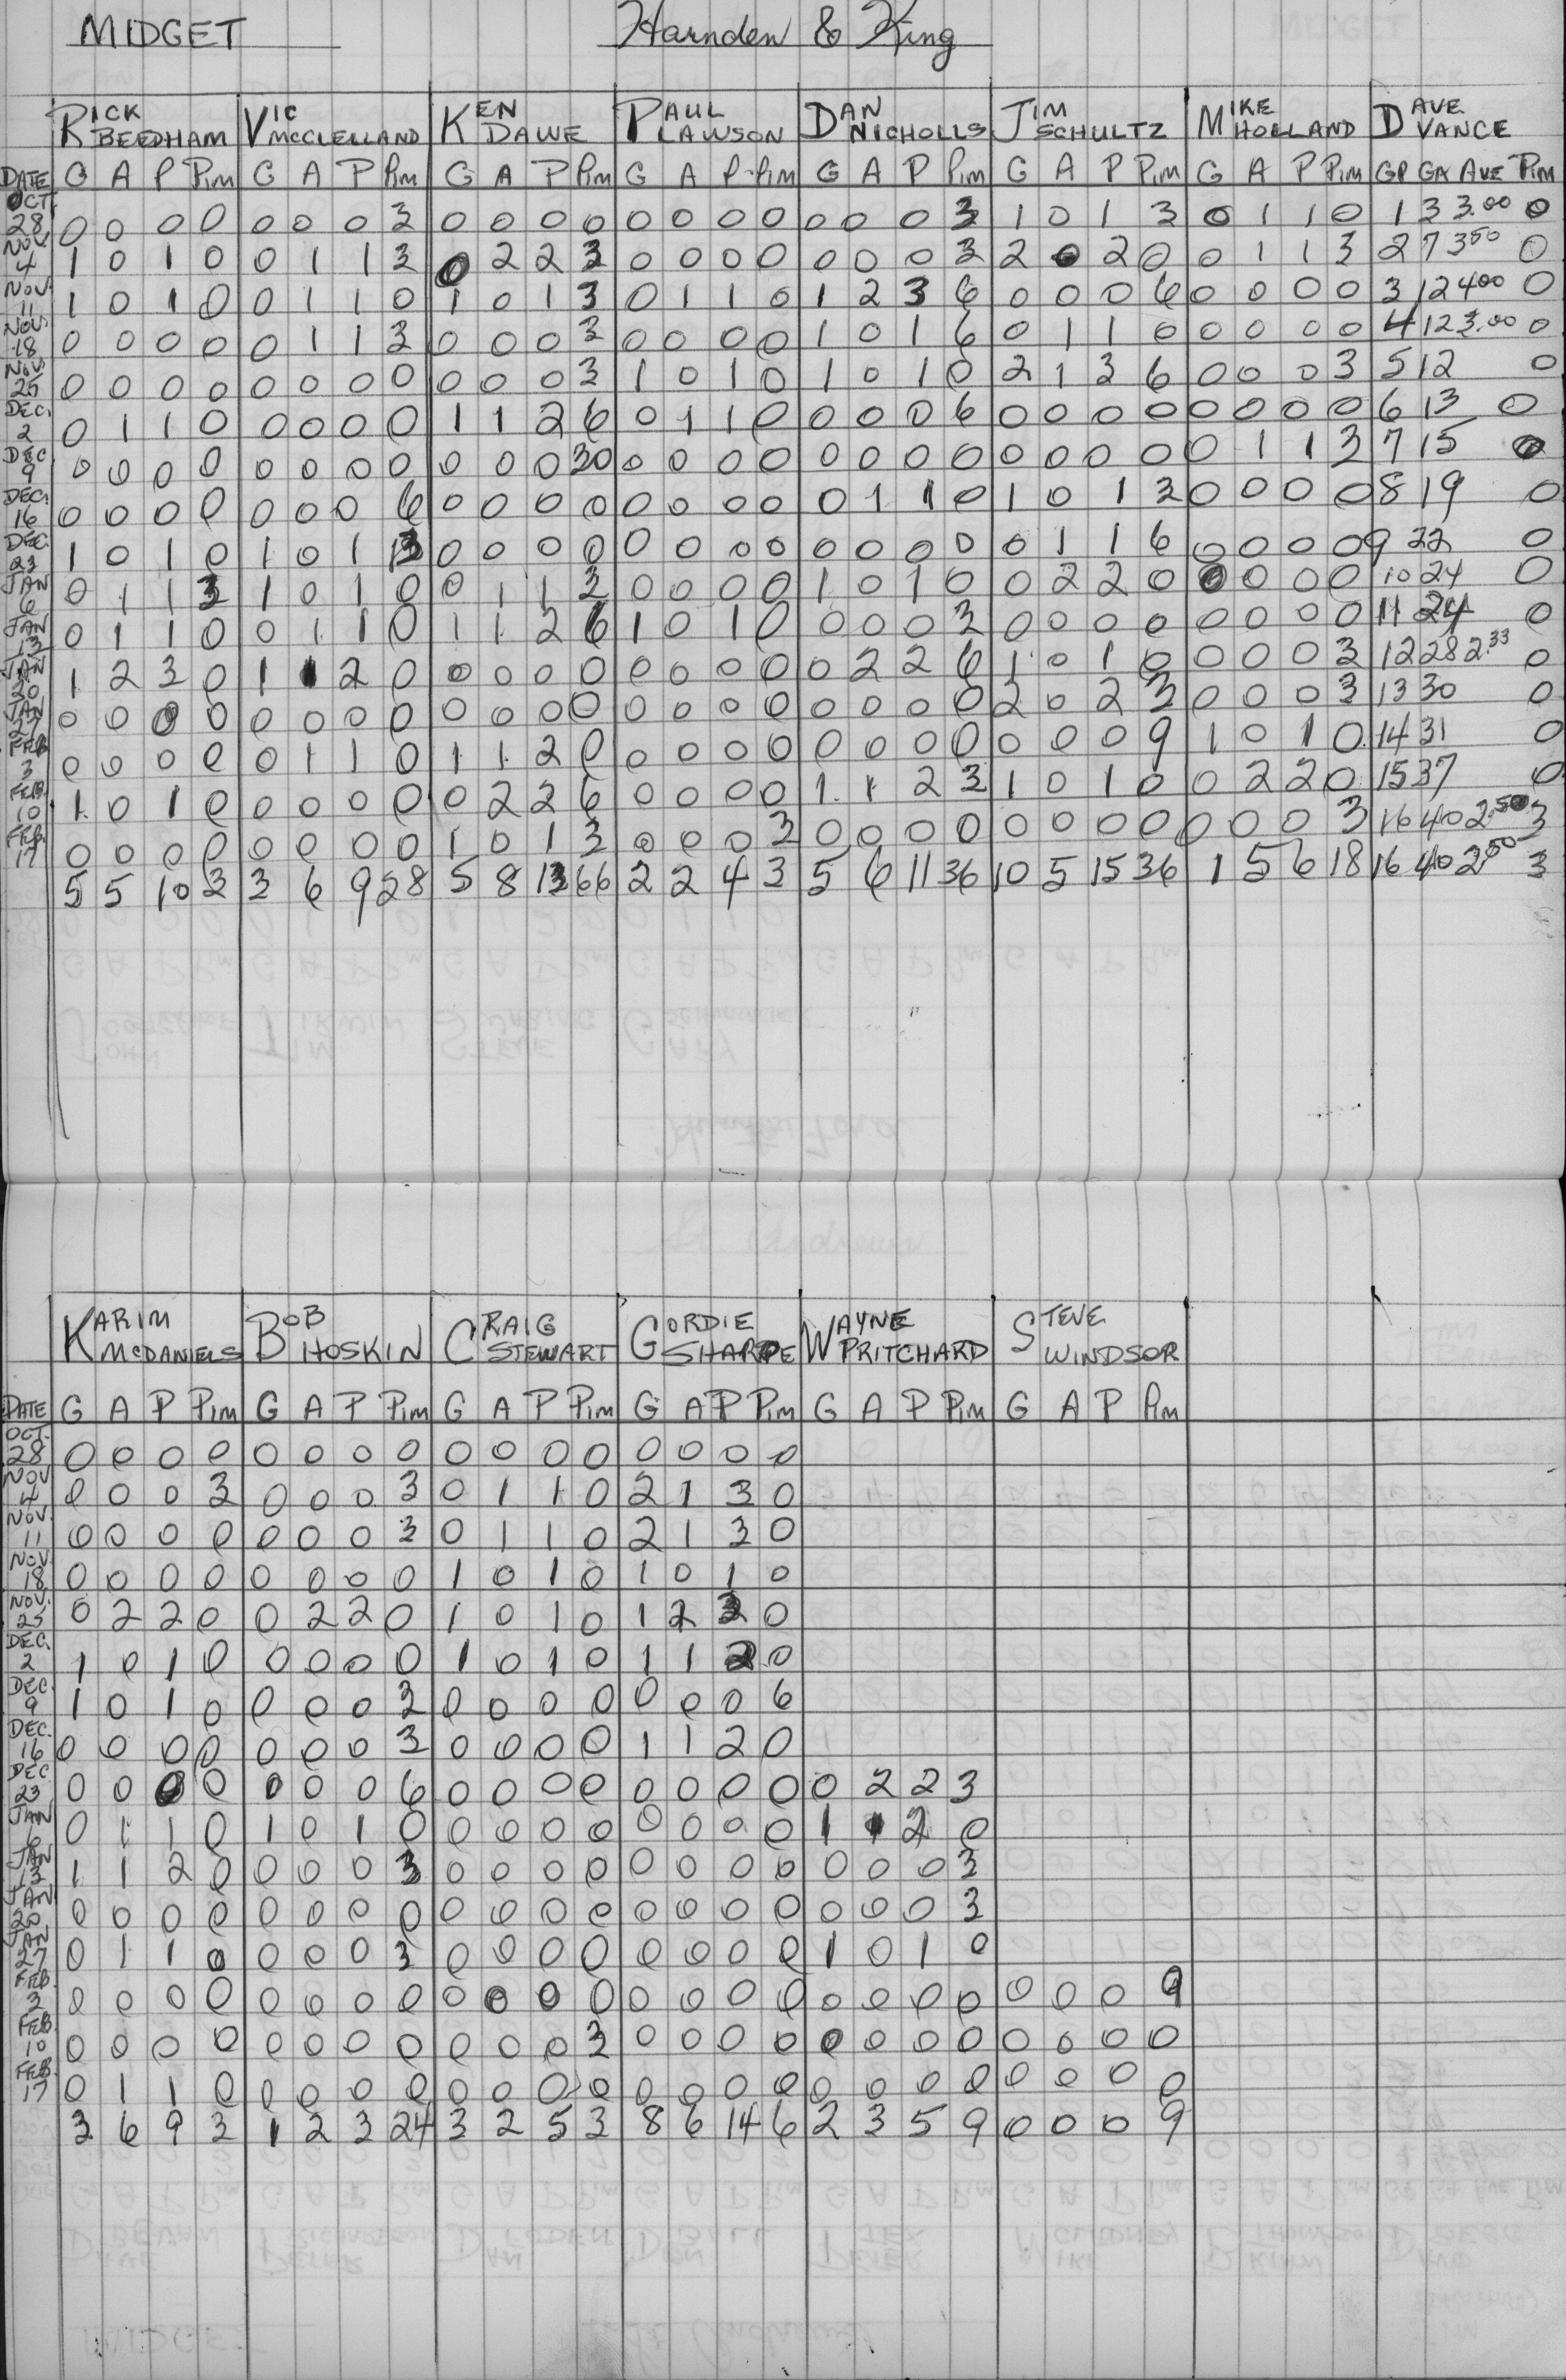 MIDGET Harnden & King
RICK BEEDHAM VIC MCCLELLAND KEN DAWE PAUL LAWSON DAN NICHOLLS JIM SCHULTZ MIKE HOLLAND DAVE VANCE
DATE G A P Pim G A P Pim G A P Pim G A P Pim G A P Pim G A P Pim G A P Pim GP GA AVE Pim
OCT. 28 0 0 0 0 0 0 0 3 0 0 0 0 0 0 0 0 0 0 0 3 1 0 1 3 0 1 1 0 1 3 3.00 0
NOV. 4 1 0 1 0 0 1 1 3 0 2 2 3 0 0 0 0 0 0 0 3 2 0 2 0 0 1 1 3 2 7 3.50 0
NOV. 11 1 0 1 0 0 1 1 0 1 0 1 3 0 1 1 0 1 2 3 6 0 0 0 6 0 0 0 0 3 12 4.00 0
NOV. 18 0 0 0 0 0 1 1 3 0 0 0 3 0 0 0 0 1 0 1 6 0 1 1 0 0 0 0 0 4 12 3.00 0
NOV. 25 0 0 0 0 0 0 0 0 0 0 0 3 1 0 1 0 1 0 1 0 2 1 3 6 0 0 0 3 5 12 0
DEC. 2 0 1 1 0 0 0 0 0 1 1 2 6 0 1 1 0 0 0 0 6 0 0 0 0 0 0 0 0 6 13 0
DEC. 9 0 0 0 0 0 0 0 0 0 0 0 30 0 0 0 0 0 0 0 0 0 0 0 0 0 1 1 3 7 15 0
DEC. 16 0 0 0 0 0 0 0 6 0 0 0 0 0 0 0 0 0 1 1 0 1 0 1 3 0 0 0 0 8 19 0
DEC. 23 1 0 1 0 1 0 1 13 0 0 0 0 0 0 0 0 0 0 0 0 0 1 1 6 0 0 0 0 9 22 0
JAN 6 0 1 1 3 1 0 1 0 0 1 1 3 0 0 0 0 1 0 1 0 0 2 2 0 0 0 0 0 10 24 0
JAN 13 0 1 1 0 0 1 1 0 1 1 2 6 1 0 1 0 0 0 0 3 0 0 0 0 0 0 0 0 11 24 0
JAN 20 1 2 3 0 1 1 2 0 0 0 0 0 0 0 0 0 0 2 2 6 1 0 1 0 0 0 0 3 12 28 2.33 0
JAN 27 0 0 0 0 0 0 0 0 0 0 0 0 0 0 0 0 0 0 0 0 2 0 2 3 0 0 0 3 13 30 0
FEB 3 0 0 0 0 0 1 1 0 1 1 2 0 0 0 0 0 0 0 0 0 0 0 0 9 1 0 1 0 14 31 0
FEB. 10 1 0 1 0 0 0 0 0 0 2 2 6 0 0 0 0 1 1 2 3 1 0 1 0 0 2 2 0 15 37 0
FEB. 17 0 0 0 0 0 0 0 0 1 0 1 3 0 0 0 3 0 0 0 0 0 0 0 0 0 0 0 3 16 40 2.50 3
5 5 10 3 3 6 9 28 5 8 13 66 2 2 4 3 5 6 11 36 10 5 15 36 1 5 6 18 16 40 2.50 3
KARIM MCDANIELS BOB HOSKIN CRAIG STEWART GORDIE SHARPE WAYNE PRITCHARD STEVE WINDSOR
DATE G A P Pim G A P Pim G A P Pim G A P Pim G A P Pim G A P Pim
OCT. 28 0 0 0 0 0 0 0 0 0 0 0 0 0 0 0 0
NOV 4 0 0 0 3 0 0 0 3 0 1 1 0 2 1 3 0
NOV. 11 0 0 0 0 0 0 0 3 0 1 1 0 2 1 3 0
NOV 18 0 0 0 0 0 0 0 0 1 0 1 0 1 0 1 0
NOV. 25 0 2 2 0 0 2 2 0 1 0 1 0 1 2 3 0
DEC. 2 1 0 1 0 0 0 0 0 1 0 1 0 1 1 2 0
DEC. 9 1 0 1 0 0 0 0 3 0 0 0 0 0 0 0 6
DEC. 16 0 0 0 0 0 0 0 3 0 0 0 0 1 1 2 0
DEC 23 0 0 0 0 0 0 0 6 0 0 0 0 0 0 0 0 0 2 2 3
JAN 6 0 1 1 0 1 0 1 0 0 0 0 0 0 0 0 0 1 1 2 0
JAN 13 1 1 2 0 0 0 0 3 0 0 0 0 0 0 0 0 0 0 0 3
JAN 20 0 0 0 0 0 0 0 0 0 0 0 0 0 0 0 0 0 0 0 3
JAN 27 0 1 1 0 0 0 0 3 0 0 0 0 0 0 0 0 1 0 1 0
FEB. 3 0 0 0 0 0 0 0 0 0 0 0 0 0 0 0 0 0 0 0 0 0 0 0 9
FEB. 10 0 0 0 0 0 0 0 0 0 0 0 3 0 0 0 0 0 0 0 0 0 0 0 0
FEB. 17 0 1 1 0 0 0 0 0 0 0 0 0 0 0 0 0 0 0 0 0 0 0 0 0
3 6 9 3 1 2 3 24 3 2 5 3 8 6 14 6 2 3 5 9 0 0 0 9